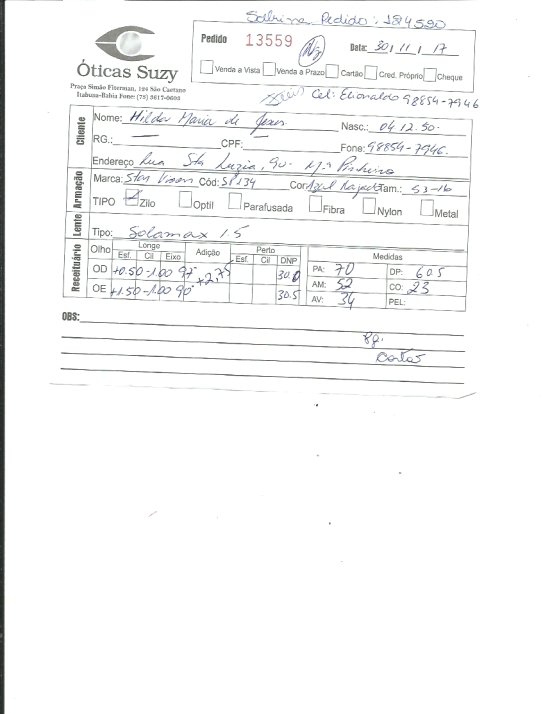 Sabrina Pedido: 184590
Óticas Suzy
Praça Simão Fiterman, 124 São Caetano
Itabuna-Bahia Fone: (73) 3617-0603
Pedido 13559 Data: 30/11/17
Venda a Vista Venda a Prazo Cartão Cred. Próprio Cheque
Cel: Elionaldo 98854-7946
Cliente
Nome: Hilda Maria de Jesus Nasc.: 04.12.50.
RG.: CPF: Fone: 98854-7946.
Endereço Rua Sta Luzia, 90- Mª Pinheiro
Armação
Marca: Star Vision Cód: SP134 Cor: Azul Rajado Tam.: 53-16
TIPO Zilo Optil Parafusada Fibra Nylon Metal
Lente
Tipo: Solamax 1.5
Receituário
Olho Longe Adição Perto Medidas
Esf. Cil Eixo Esf. Cil DNP
OD +0.50 -1.00 97° +2,75 30.0 PA: 70 DP: 60.5
OE +1.50 -1.00 90° 30.5 AM: 52 CO: 23
AV: 34 PEL:
OBS:
Pg.
Cartão